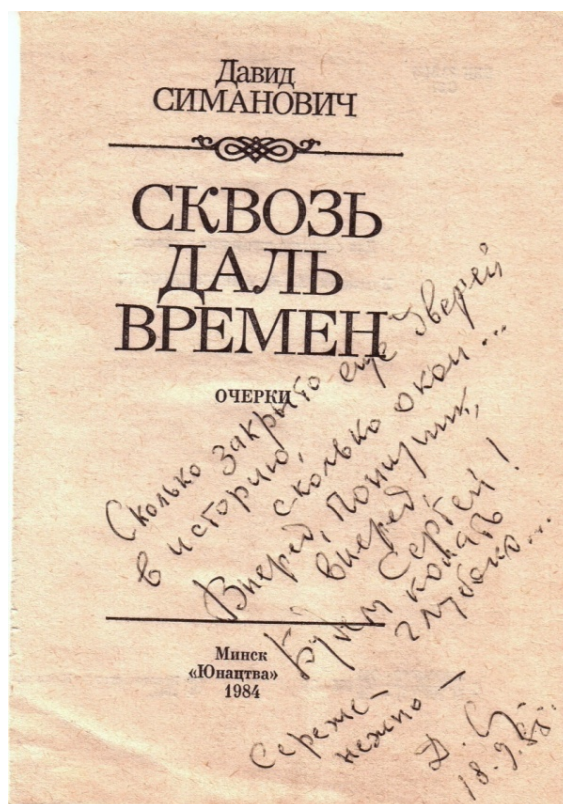 Давид
СИМАНОВИЧ
СКВОЗЬ
ДАЛЬ
ВРЕМЕН
ОЧЕРКИ
Сколько закрыто еще дверей
в историю,
сколько окон...
Вперед,
вперед,
Будем Сергей!
копать
глубоко...
Минск
«Юнацтва»
1984
Сереже –
нежно –
Д. С
18.9.88.